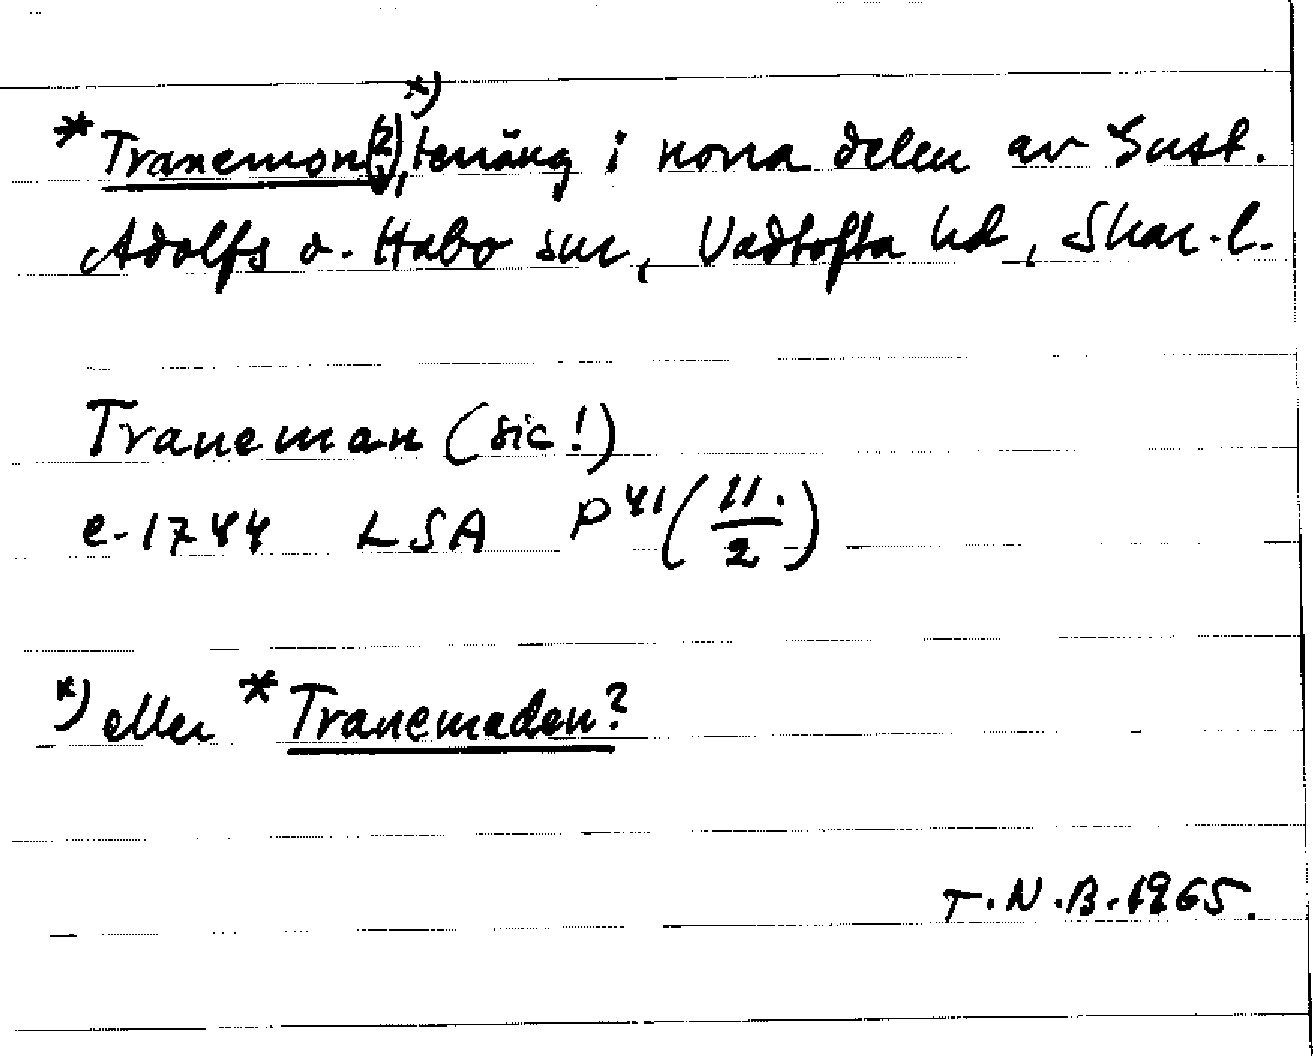 *Tranemon(?),*) terräng i norra delen av Gust.
Adolfs o. Habo snr, Vadtofta hd, Skar. l.
Traneman (sic!)
e. 1744 LSA P 41 (11./2)
*) eller *Tranemaden?
T.N.B. 1965.